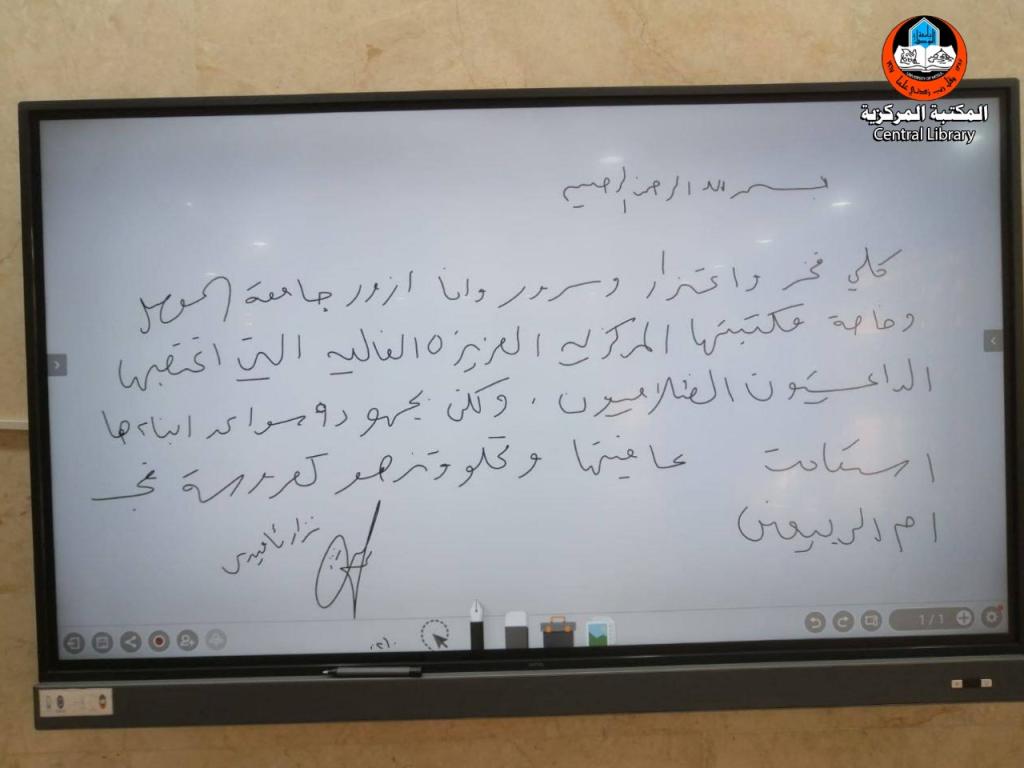 المكتبة المركزية
Central Library
بسم الله الرحمن الرحيم
كلي فخر واعتزاز وسرور وانا ازور جامعة الموصل
وخاصة مكتبتها المركزيه العزيزه الغاليه التي اغتصبها
الداعشيون الظلاميون . ولكن بجهود وسواعد ابناءها
استعادت عافيتها وتحلو وتزهو كعروسة في
ام الربيعين
نزار
1/1